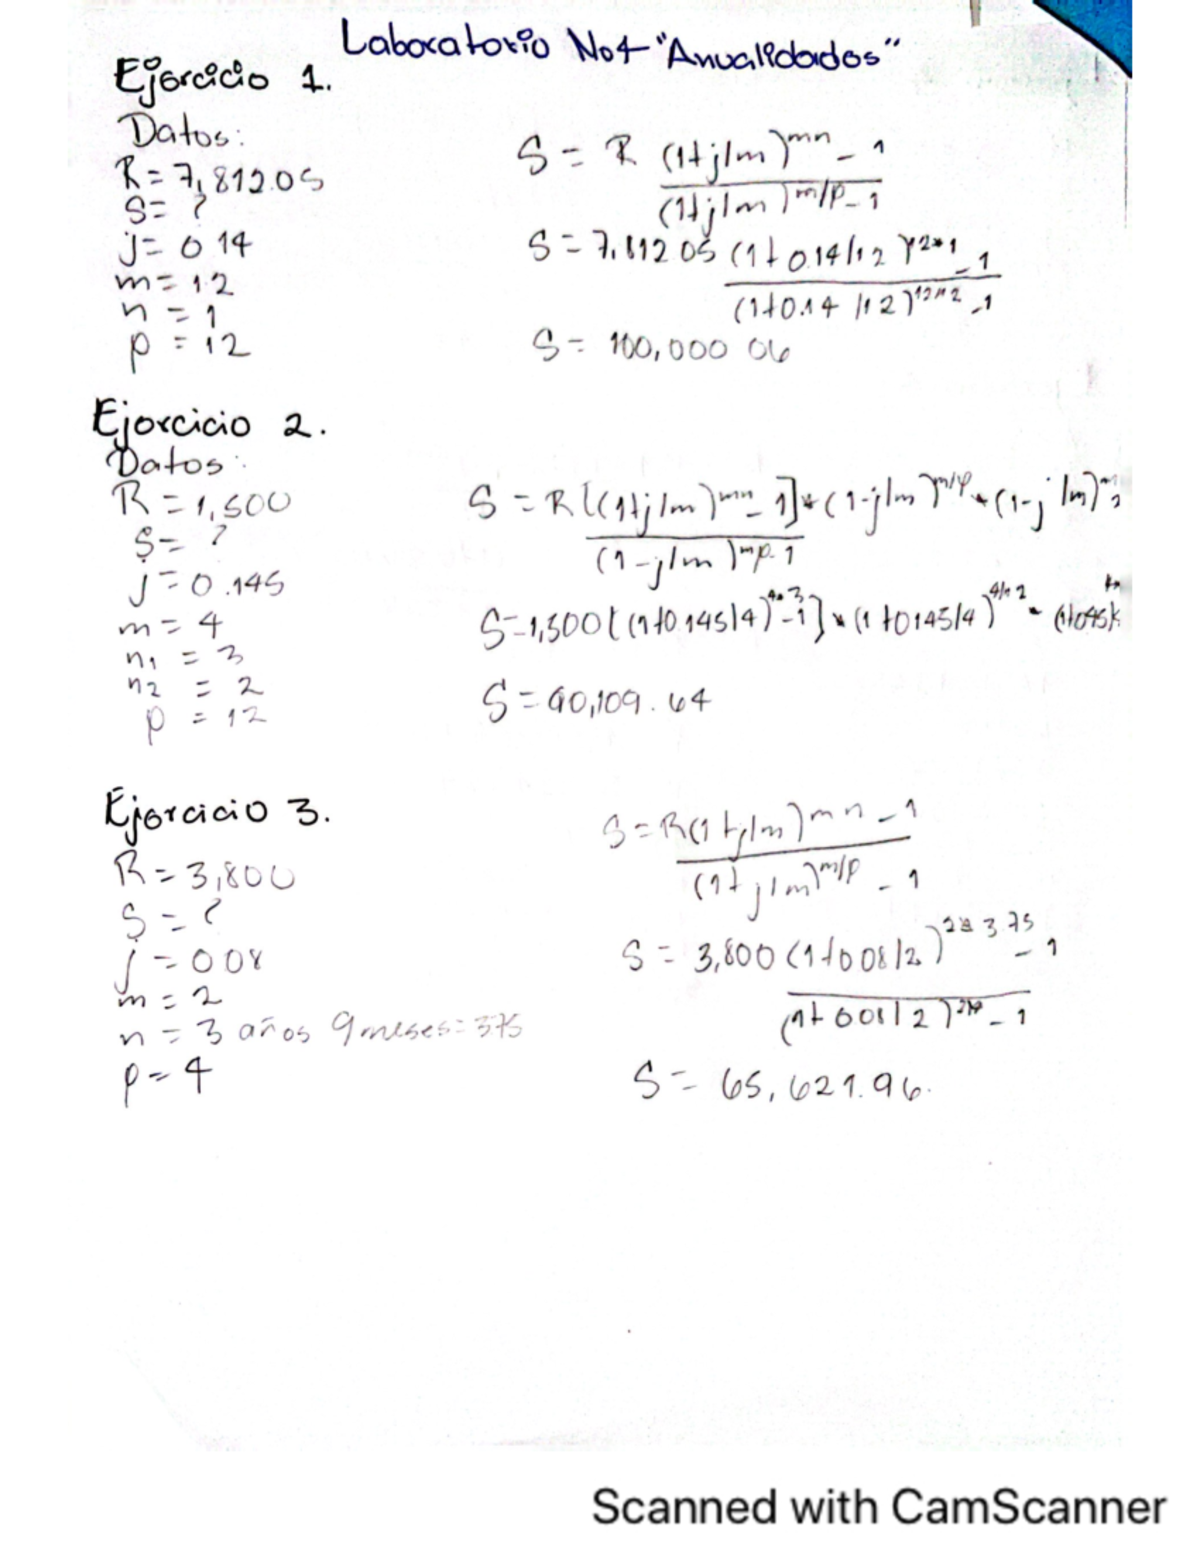 Laboratorio No4 "Anualidades"
Ejercicio 1.
Datos:
R = 7,812.05
S = ?
j = 0.14
m = 12
n = 1
p = 12
S = R (1+j/m)^mn - 1
(1+j/m)^m/p - 1
S = 7,812.05 (1+0.14/12)^12*1 - 1
(1+0.14/12)^12/12 - 1
S = 100,000 06
Ejercicio 2.
Datos:
R = 1,500
S = ?
j = 0.145
m = 4
n1 = 3
n2 = 2
p = 12
S = R[(1+j/m)^mn - 1]*(1-j/m)^m/p*(1-j/m)
(1-j/m)^mp-1
S=1,500[(1+0.145/4)^4*3-1]*(1+0145/4)^4/12
S = 90,109.64
Ejercicio 3.
R = 3,800
S = ?
j = 0 08
m = 2
n = 3 años 9 meses = 375
p = 4
S = R(1+j/m)^mn - 1
(1+j/m)^m/p - 1
S = 3,800 (1+008/2)^2* 3.75 - 1
(1+008/2) - 1
S = 65,621.96.
Scanned with CamScanner